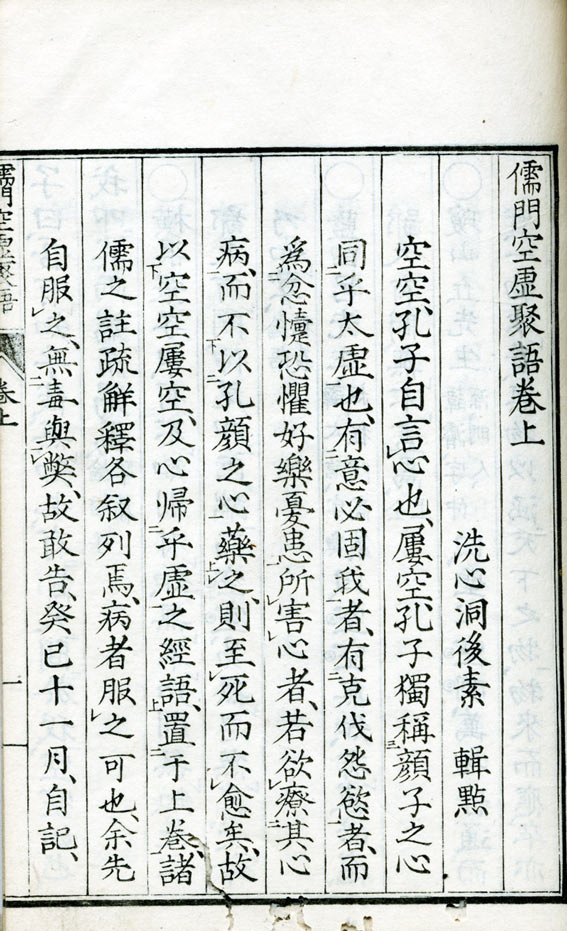 儒門空虛聚語卷上
洗心洞後素　輯點
空空、孔子自言心也、屢空、孔子獨稱顏子之心
同乎太虛也、有意必固我者、有克伐怨慾者、而
爲忿懥恐懼好樂憂患所害心者、若欲療其心
病、而不以孔顏之心藥之、則至死而不愈矣、故
以空空屢空、及心歸乎虛之經語、置于上卷、諸
儒之註疏解釋各叙列焉、病者服之可也、余先
自服之、無毒與弊、故敢告、癸巳十一月、自記、
儒門空虛聚語
卷上
一